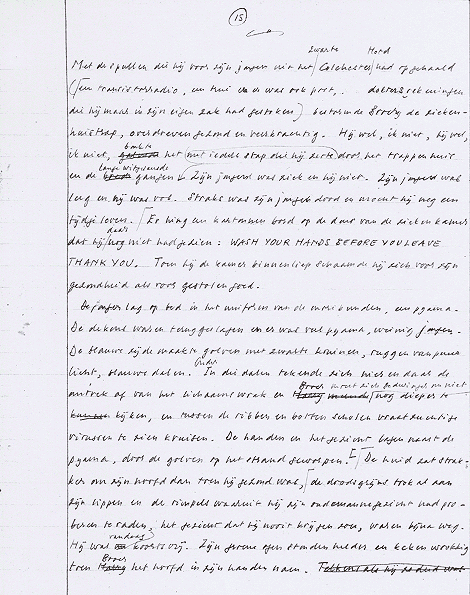 15
zwarte Hotel
Met de spullen die hij voor zijn jongen uit het Colchester had opgehaald
(een transistorradio, en er was ook post, doktersrekeningen
die hij maar in zijn eigen zak had gestoken) bestormde Broer de zieken-
huistrap, overdreven gezond en verkrachtig. Hij wel, ik niet, hij wel,
bonkte
ik niet, het met iedere stap die hij zette door het trappenhuis
lange witgesausde
en de gangen. Zijn jongen was ziek en hij niet. Zijn jongen was
leeg en hij was vol. Straks was zijn jongen dood en mocht hij nog een
tijdje leven. Er hing een kartonnen bord op de deur van de ziekenkamer
daar
dat hij nog niet had gezien: WASH YOUR HANDS BEFORE YOU LEAVE
THANK YOU. Toen hij de kamer binnenliep schaamde hij zich voor zijn
gezondheid als voor gestolen goed.
De jongen lag op bed in het uniform van de moribunden, een pyama.
De dekens waren teruggeslagen en er was veel pyama, weinig jongen.
De blauwe zijde maakte golven met zwarte kruinen, ruggen van
licht, blauwe dalen. In die dalen tekende zich hier en daar de
omtrek af van het lichaamswrak en Broer moest zich bedwingen om niet nog dieper te
kijken, en tussen de ribben en botten scholen vraatzuchtige
virussen te zien kruisen. De handen en het gezicht lagen naast de
pyama, door de golven op het strand geworpen. De huid zat strak-
ker om zijn hoofd dan toen hij gezond was, de doodsgrijns trok al aan
zijn lippen en de rimpels waaruit hij zijn oudemannengezicht had pro-
beren te raden, het gezicht dat hij nooit krijgen zou, waren bijna weg.
vandaag
Hij was koortsvrij. Zijn ogen stonden helder en keken vrolijk
Broer
toen het hoofd in zijn handen nam.